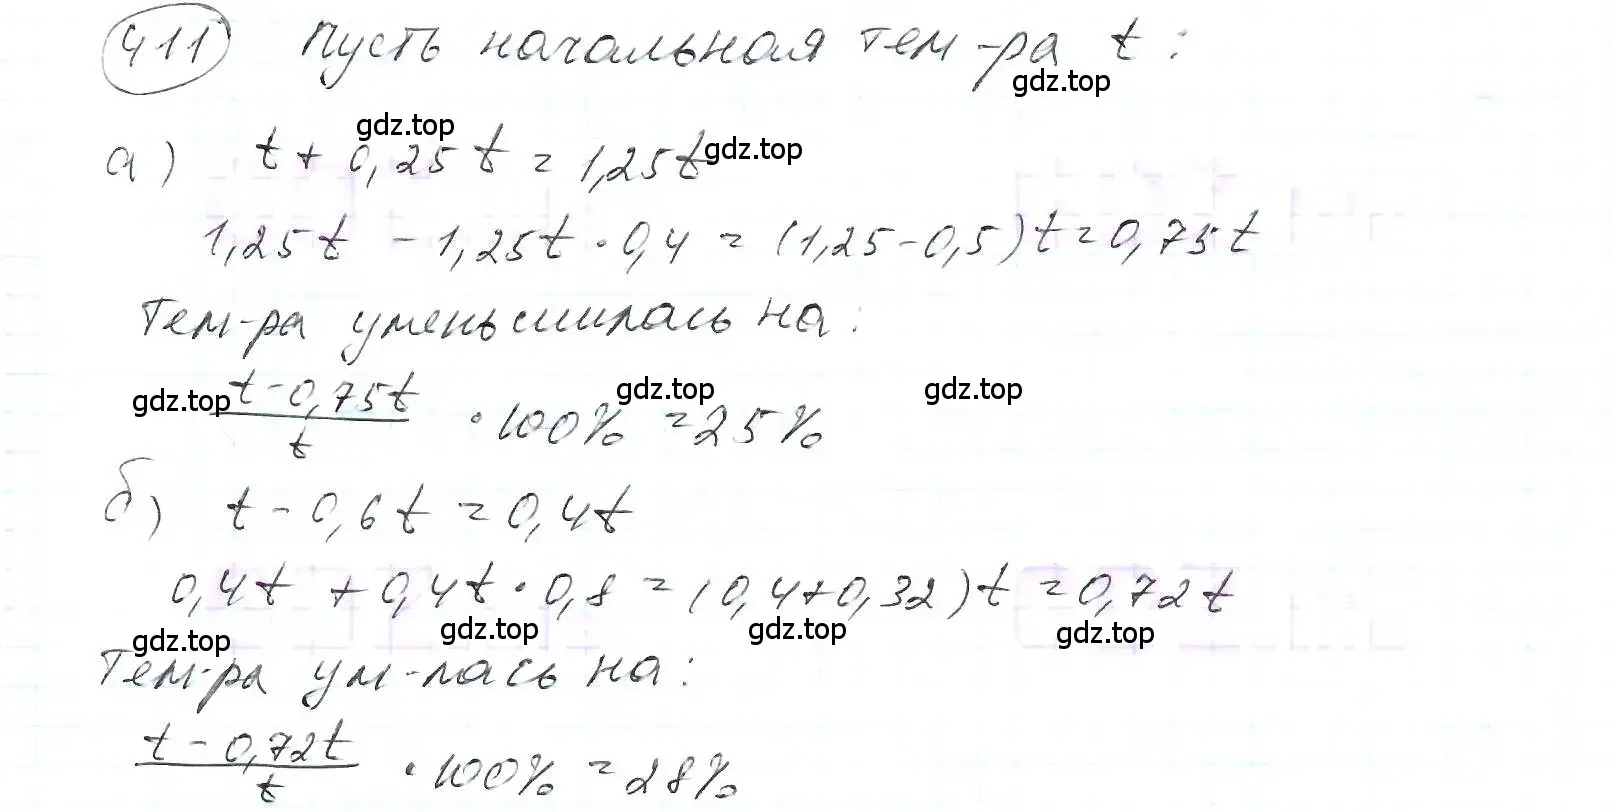 411 Пусть начальная тем-ра t:
gdz.top
gdz.top
а) t + 0,25t = 1,25t
gdz.top
1,25t - 1,25t · 0,4 = (1,25-0,5)t = 0,75t
Тем-ра уменьшилась на:
gdz.top gdz.top gdz.top
t - 0,75t / t · 100% = 25%
б) t - 0,6t = 0,4t
0,4t + 0,4t · 0,8 = (0,4+0,32)t = 0,72t
gdz.top gdz.top gdz.top gdz.top
Тем-ра ум-лась на:
t - 0,72t / t · 100% = 28%